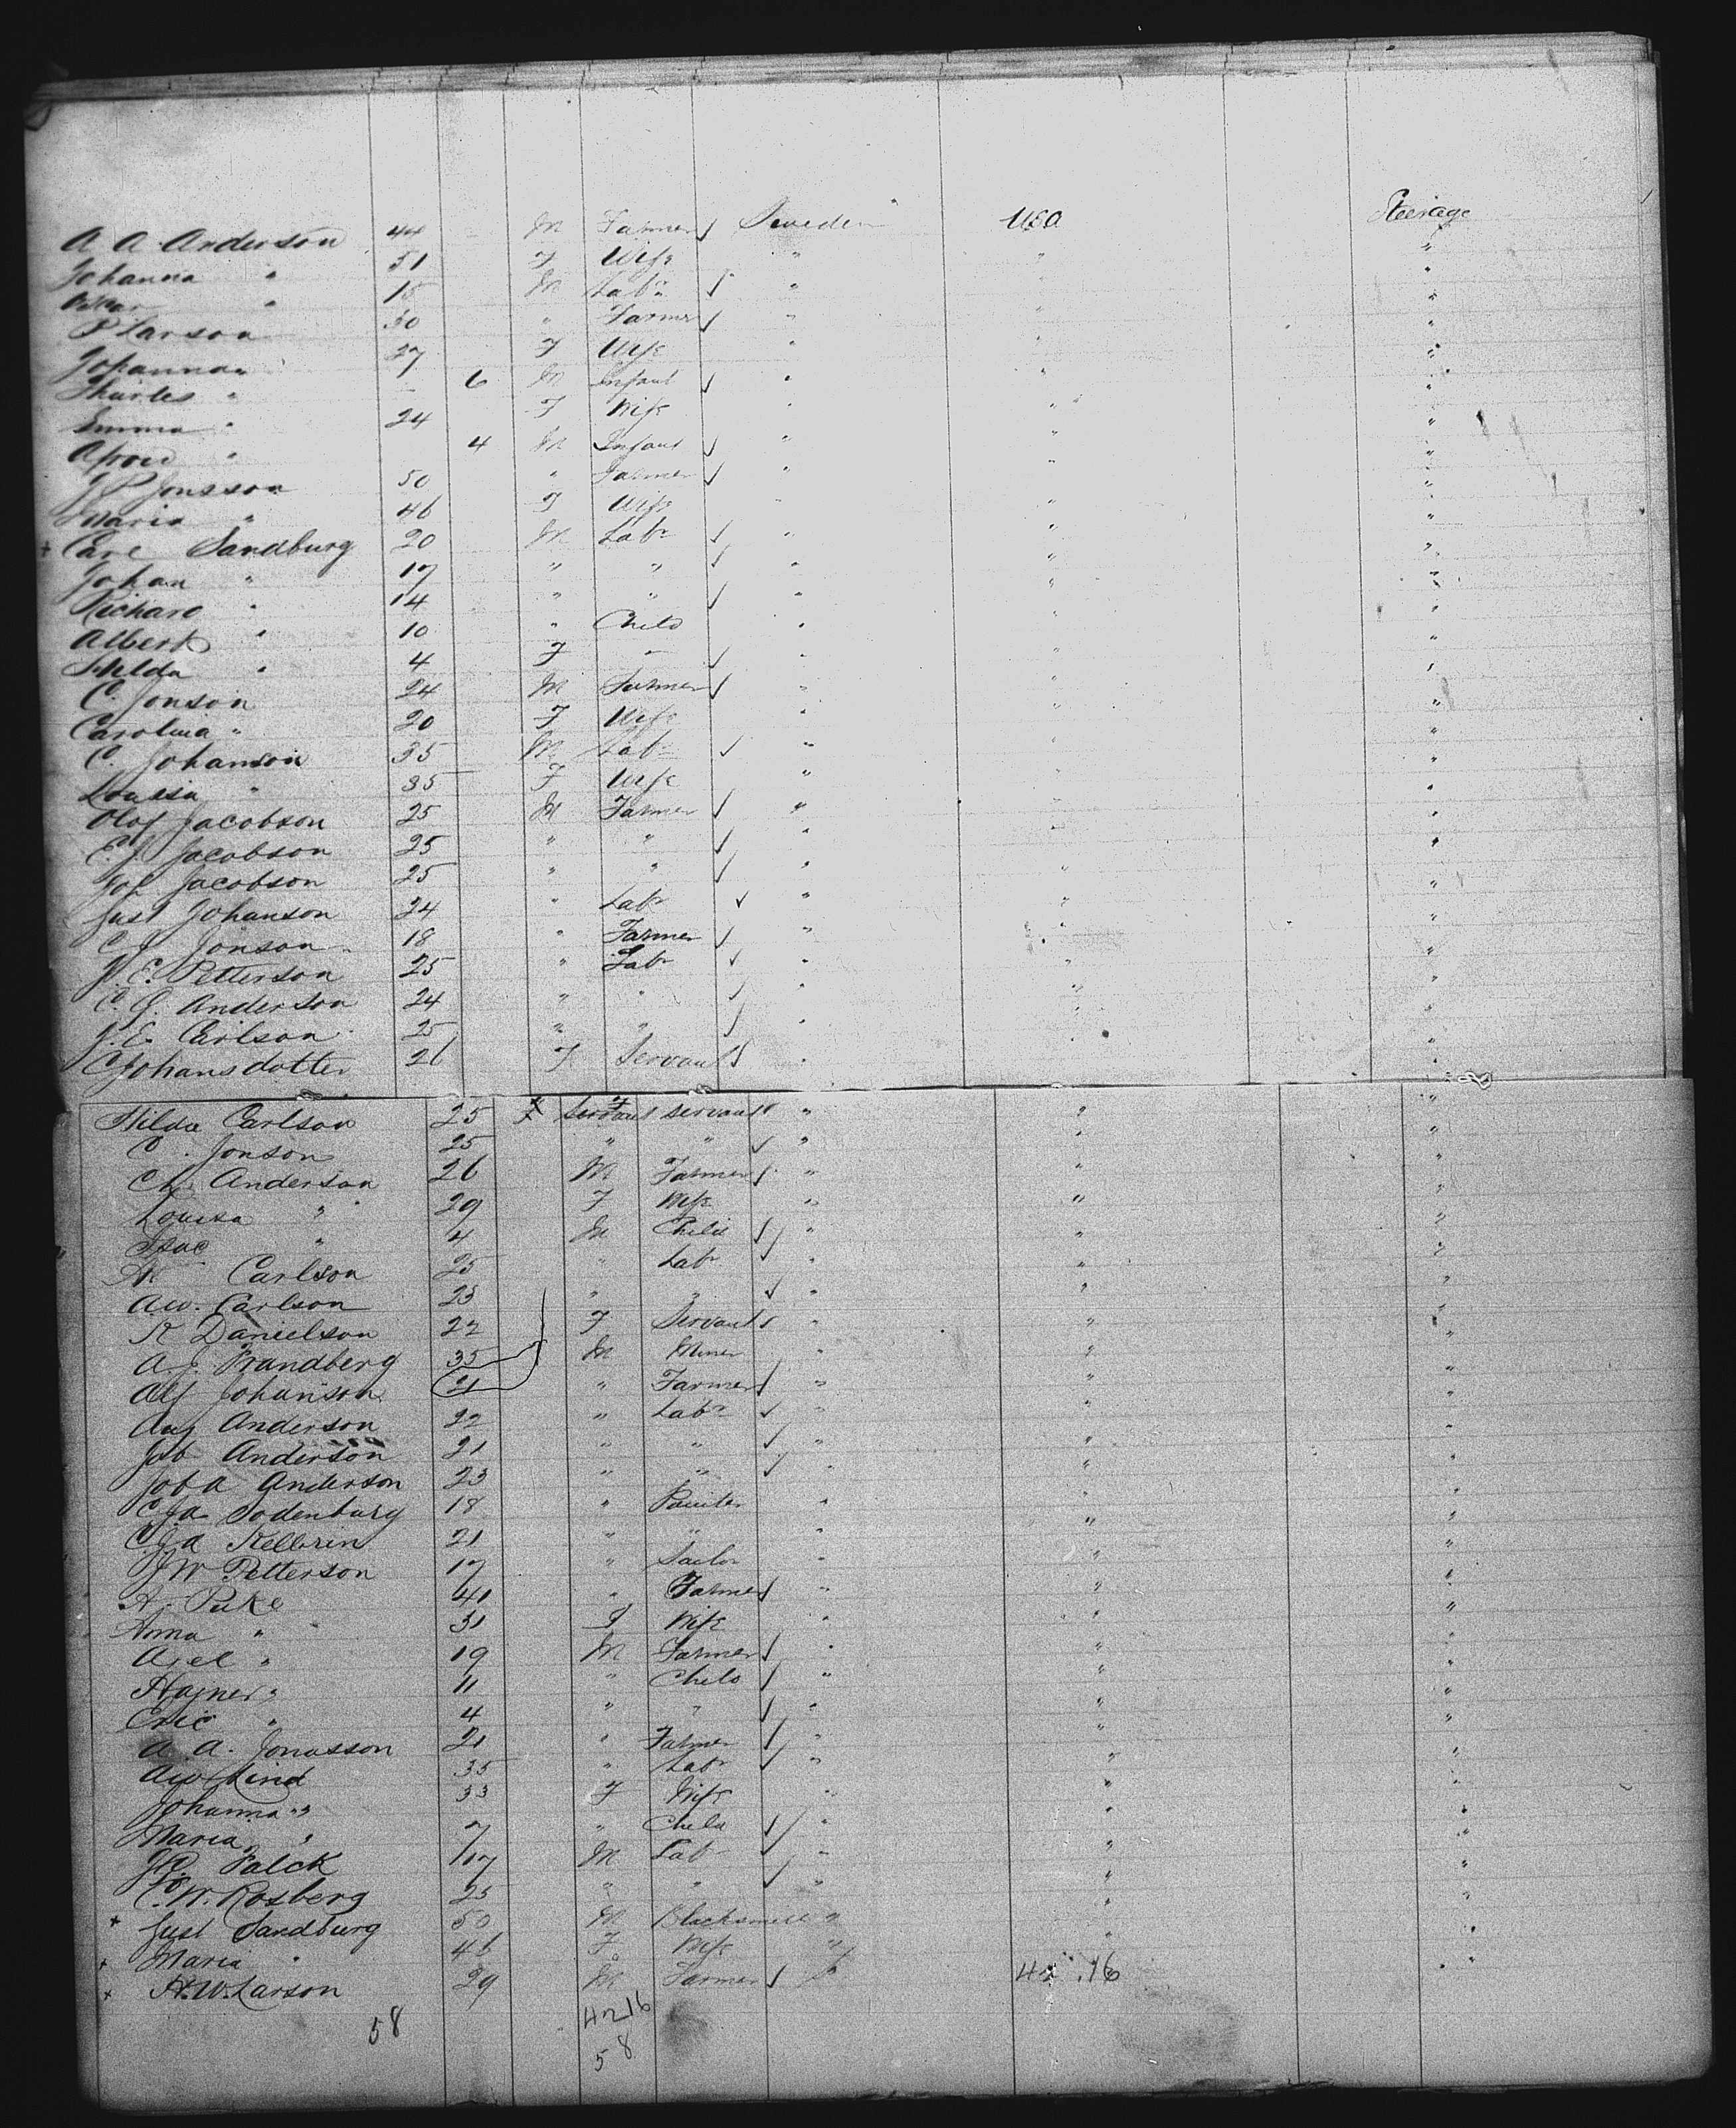 A A Anderson 44 M Farmer Sweden USA Steerage
Johanna " 51 F Wife " " "
Oskar " 15 M Labr " "
P Larson 30 " Farmer " " "
Johanna " 27 F Wife " " "
Charles " - 6 M Infant " " "
Emma " 24 F Wife " " "
" 4 M Infant " " "
J P Jonsson 50 " Farmer " " "
Maria " 46 F Wife " " "
+ Carl Sandburg 20 M Labr " " "
Johan " 17 " " " " "
Richard " 14 " " " " "
Albert " 10 " Child " " "
Hilda " 4 F " " " "
C. Jonson 24 M Farmer " " "
Carolina " 20 F Wife " " "
C. Johanson 35 M Labr " " "
Louisa " 35 F Wife " " "
Olof Jacobson 25 M Farmer " " "
C. J. Jacobson 25 " " " " "
Joh Jacobson 25 " " " " "
Gust Johanson 24 " Labr " " "
C J Jonson 18 " Farmer " " "
J. E. Petterson 25 " Labr " " "
C. G. Anderson 24 " " " " "
J. E. Carlson 25 " " " " "
C Johansdotter 26 F Servant " " "
Hilda Carlson 25 F Servant Servant " " "
C. Jonson 25 " " " " "
Ch Anderson 26 M Farmer " " "
Louisa " 29 F Wife " " "
Isac " 4 M Child " " "
Carlson 25 " Labr " " "
A.W. Carlson 23 " " " " "
K Danielson 22 F Servant " " "
A. J. Brandberg 35 M Miner " " "
Alf Johanson 21 " Farmer " " "
Aug Anderson 22 " Labr " " "
Joh Anderson 21 " " " " "
Joh A Anderson 23 " " " " "
C. J. A Sodenburg 18 " Painter " " "
C. J. A Kellorin 21 " " " " "
J W Petterson 17 " Sailor " " "
A. Puke 41 " Farmer " " "
Anna " 31 F Wife " " "
Axel " 19 M Farmer " " "
Hajner " 11 " Child " " "
Eric " 4 " " " " "
A. A. Jonasson 21 " Farmer " " "
A W Lind 35 " Labr " " "
Johanna " 33 F Wife " " "
Maria " 7 " Child " " "
Falck 17 M Labr " " "
C. W. Rosberg 23 " " " " "
+ Gust Sandburg 50 M Blacksmith " " "
+ Maria " 46 F Wife " " "
+ A. W. Larson 29 M Farmer " 42 16 "
58 42 16
58